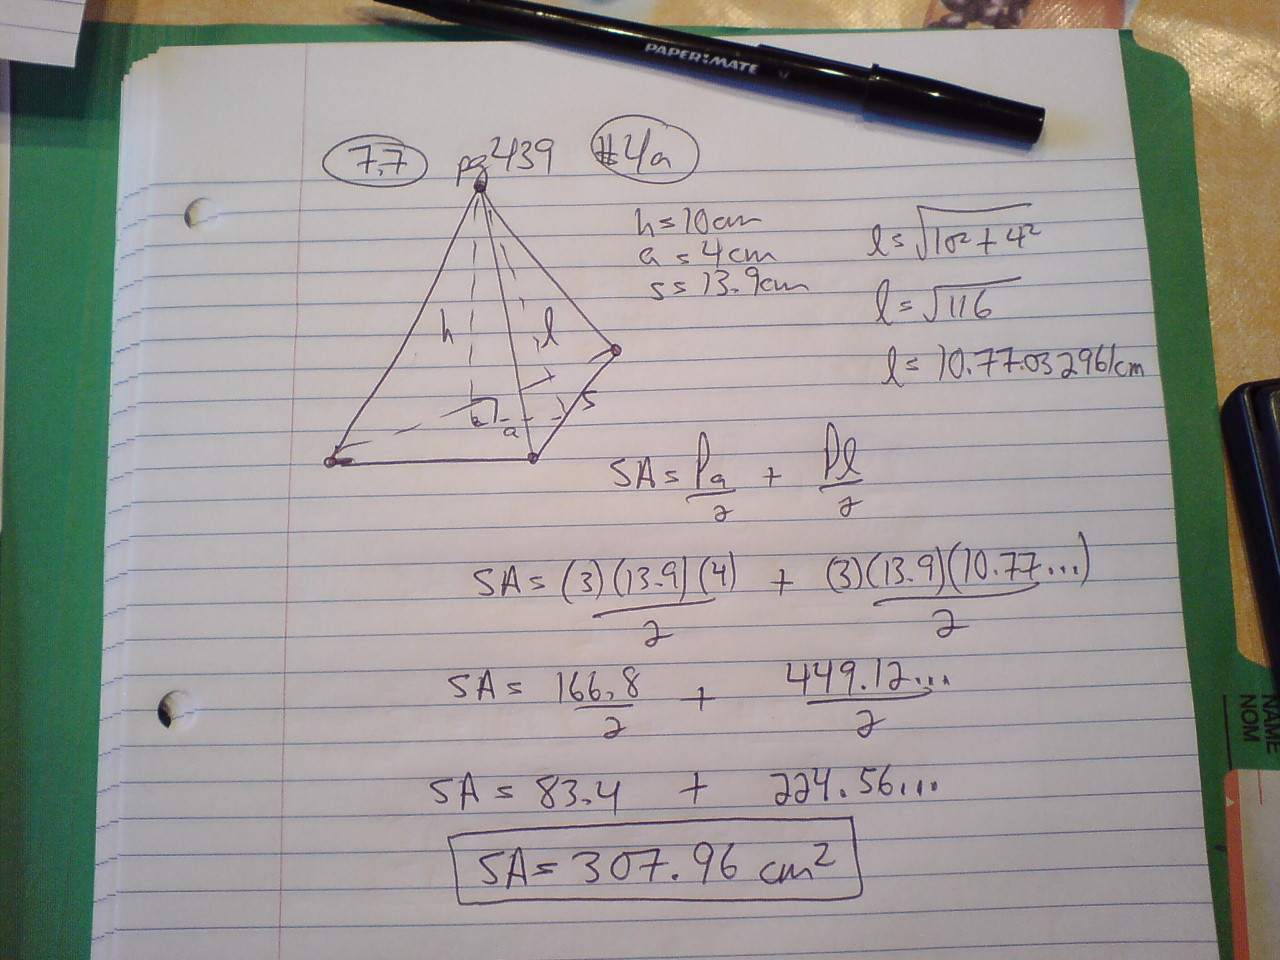 PAPER:MATE
7.7 pg 439 #4a
h = 10cm
a = 4cm
s = 13.9cm
l = √10² + 4²
l = √116
l = 10.77.03 2961cm
h
l
s
a
SA = Pa/2 + Pl/2
SA = (3)(13.9)(4)/2 + (3)(13.9)(10.77...)/2
SA = 166.8/2 + 449.12.../2
SA = 83.4 + 224.56...
SA = 307.96 cm²
NAME
NOM